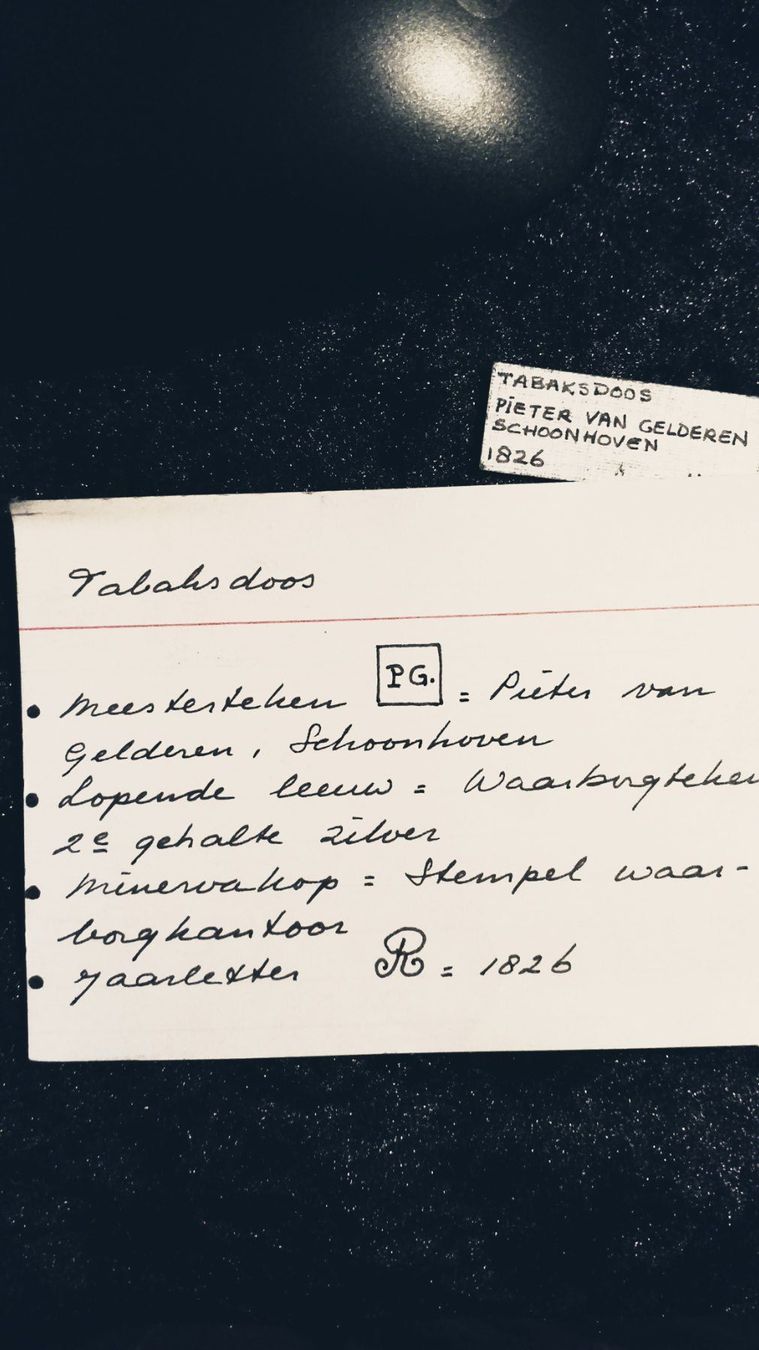 TABAKSDOOS
PIETER VAN GELDEREN
SCHOONHOVEN
1826
Tabaksdoos
• Meesterteken PG. = Pieter van
Gelderen, Schoonhoven
• Lopende leeuw = Waarborgteken
2e gehalte zilver
• Minervakop = Stempel waar-
borgkantoor
• Jaarletter R = 1826